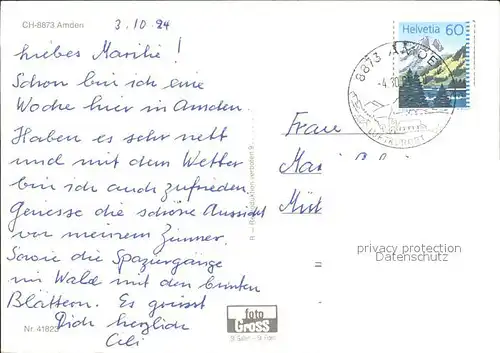 CH-8873 Amden
3.10.94
Liebes Marilie!
Schon bin ich eine
Woche hier in Amden.
Haben es sehr nett
und mit dem Wetter
bin ich auch zufrieden.
Geniesse die schöne Aussicht
von meinem Zimmer.
Sowie die Spaziergänge
im Wald mit den bunten
Blättern. Es grüsst
Dich herzlich
Cili
Nr. 41823
foto
Gross
R — Reproduktion verboten
Helvetia 60
8873 AMDEN
LUFTKURORT
Frau
privacy protection
Datenschutz